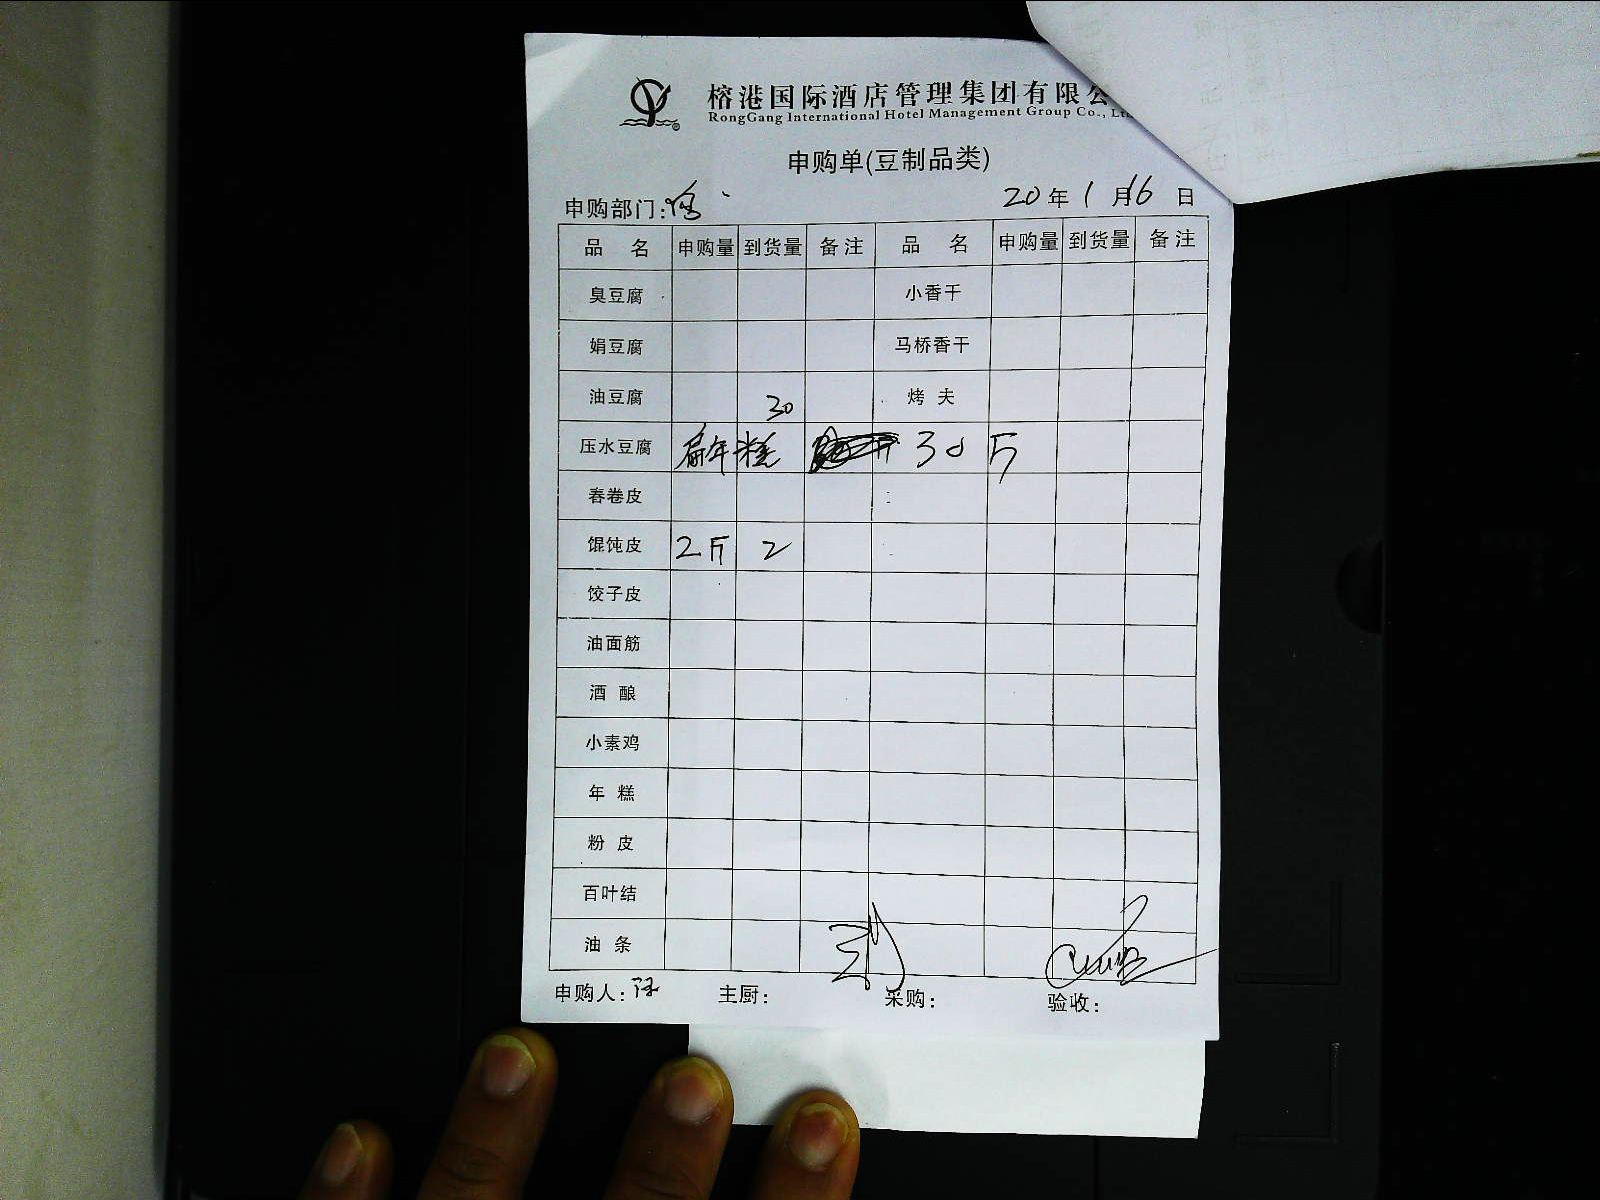 榕港国际酒店管理集团有限公
RongGang International Hotel Management Group Co., Lt
申购单(豆制品类)
申购部门: 20 年 1 月 16 日
品 名 申购量 到货量 备注 品 名 申购量 到货量 备注
臭豆腐 小香干
娟豆腐 马桥香干
油豆腐 30 烤 夫
压水豆腐 扁年糕 30 斤
春卷皮
馄饨皮 2斤 2
饺子皮
油面筋
酒 酿
小素鸡
年 糕
粉 皮
百叶结
油 条
申购人: 主厨: 采购: 验收: